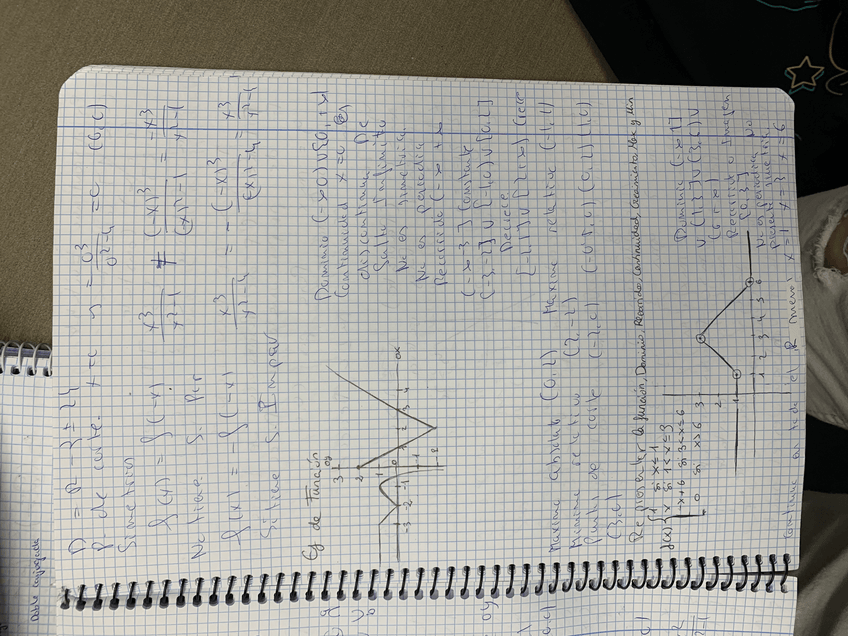 Doble conjugada
D = R - {± 2}
P. de corte. x=0 y = 0³/0²-4 = 0 (0,0)
Simetrías
f(x) = f(-x) x³/x²-1 ≠ (-x)³/(-x)²-1 = -x³/x²-1
No tiene S. Par
f(x) = -f(-x) x³/x²-4 = -(-x)³/(-x)²-4 = x³/x²-4
Si tiene S. Impar
Ej de Función
Dominio (-∞,0) ∪
Continuidad x=0 es
discontinua De
Salto Infinito
No es simetrica
No es Periodica
Recorrido (-∞ +∞
(-∞ -3] Constante
[-3,-2] ∪ [-1,0) ∪ [0,2]
Decrece
[-2,-1] ∪ [2,+∞) Crece
Máximo absoluto (0,2) Máximo relativo (-1,1)
Mínimo relativo (2,-2)
Punto de corte (-2,0) (0,2) (1,0)
(3,0)
Representar la función, Dominio, Recorrido, Continuidad, Crecimiento, Max y Min
f(x) = { 1 si x≤1
x si 1<x≤3
-x+6 si 3<x≤6
0 si x>6
Dominio (-∞ 1]
∪ (1,3] ∪ (3,6) ∪
(6 +∞)
Recorrido o Imagen
[0,3]
No es periodica No
presenta simetria
Continua en todo el R menos x=1 x=3 x=6